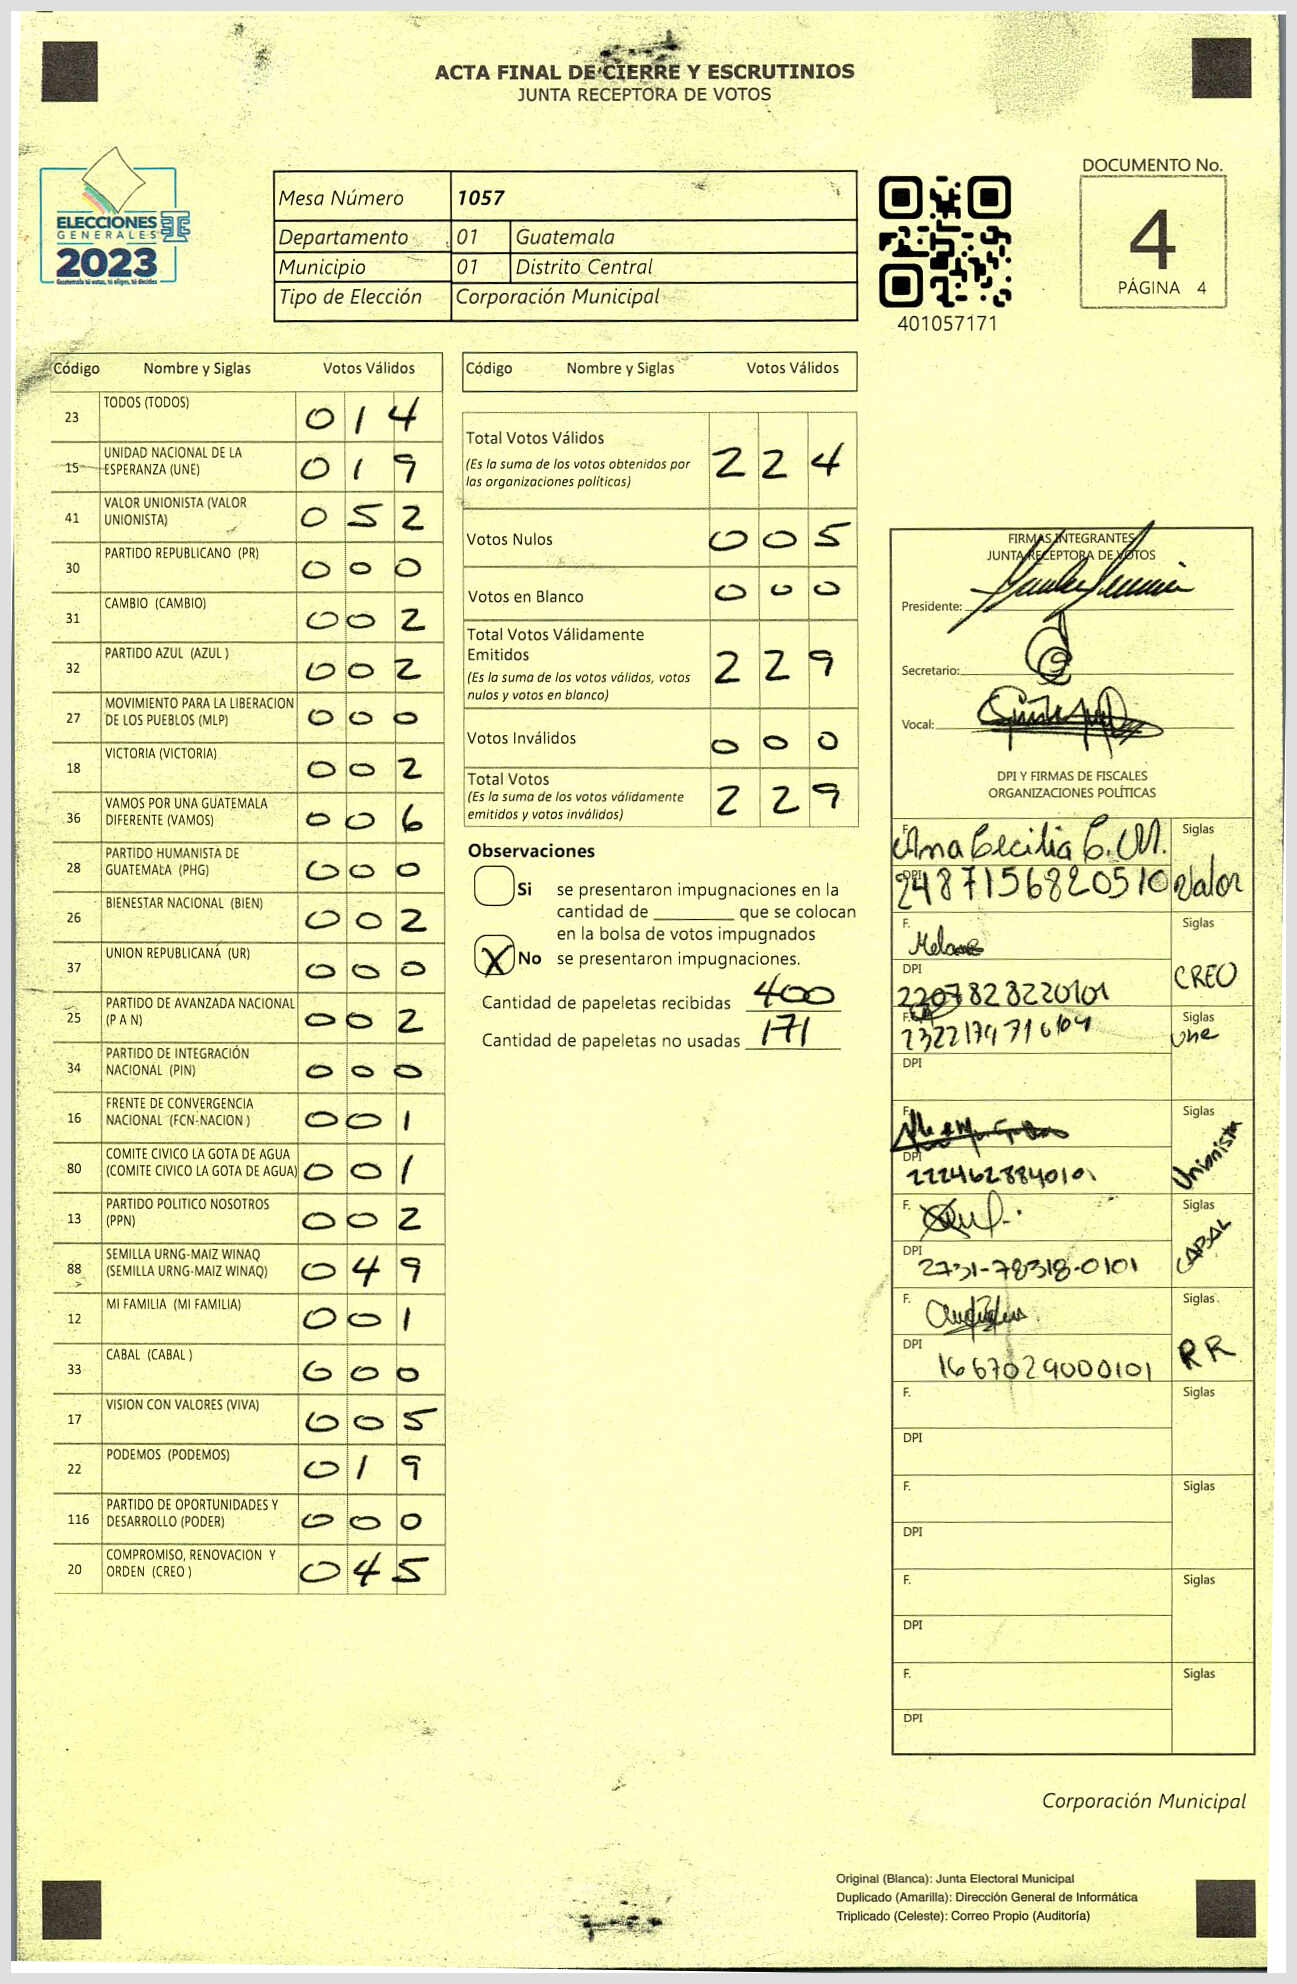 ACTA FINAL DE CIERRE Y ESCRUTINIOS
JUNTA RECEPTORA DE VOTOS
ELECCIONES
GENERALES
2023
Guatemala tú votas, tú eliges, tú decides
Mesa Número 1057
Departamento 01 Guatemala
Municipio 01 Distrito Central
Tipo de Elección Corporación Municipal
401057171
DOCUMENTO No.
4
PÁGINA 4
Código Nombre y Siglas Votos Válidos
23 TODOS (TODOS) 0 1 4
15 UNIDAD NACIONAL DE LA ESPERANZA (UNE) 0 1 9
41 VALOR UNIONISTA (VALOR UNIONISTA) 0 5 2
30 PARTIDO REPUBLICANO (PR) 0 0 0
31 CAMBIO (CAMBIO) 0 0 2
32 PARTIDO AZUL (AZUL ) 0 0 2
27 MOVIMIENTO PARA LA LIBERACION DE LOS PUEBLOS (MLP) 0 0 0
18 VICTORIA (VICTORIA) 0 0 2
36 VAMOS POR UNA GUATEMALA DIFERENTE (VAMOS) 0 0 6
28 PARTIDO HUMANISTA DE GUATEMALA (PHG) 0 0 0
26 BIENESTAR NACIONAL (BIEN) 0 0 2
37 UNION REPUBLICANA (UR) 0 0 0
25 PARTIDO DE AVANZADA NACIONAL (P A N) 0 0 2
34 PARTIDO DE INTEGRACIÓN NACIONAL (PIN) 0 0 0
16 FRENTE DE CONVERGENCIA NACIONAL (FCN-NACION ) 0 0 1
80 COMITE CIVICO LA GOTA DE AGUA (COMITE CIVICO LA GOTA DE AGUA) 0 0 1
13 PARTIDO POLITICO NOSOTROS (PPN) 0 0 2
88 SEMILLA URNG-MAIZ WINAQ (SEMILLA URNG-MAIZ WINAQ) 0 4 9
12 MI FAMILIA (MI FAMILIA) 0 0 1
33 CABAL (CABAL ) 0 0 0
17 VISION CON VALORES (VIVA) 0 0 5
22 PODEMOS (PODEMOS) 0 1 9
116 PARTIDO DE OPORTUNIDADES Y DESARROLLO (PODER) 0 0 0
20 COMPROMISO, RENOVACION Y ORDEN (CREO ) 0 4 5
Código Nombre y Siglas Votos Válidos
Total Votos Válidos 2 2 4
(Es la suma de los votos obtenidos por
las organizaciones políticas)
Votos Nulos 0 0 5
Votos en Blanco 0 0 0
Total Votos Válidamente
Emitidos 2 2 9
(Es la suma de los votos válidos, votos
nulos y votos en blanco)
Votos Inválidos 0 0 0
Total Votos 2 2 9
(Es la suma de los votos válidamente
emitidos y votos inválidos)
Observaciones
Si se presentaron impugnaciones en la
cantidad de ________ que se colocan
en la bolsa de votos impugnados
X No se presentaron impugnaciones.
Cantidad de papeletas recibidas 400
Cantidad de papeletas no usadas 171
FIRMAS INTEGRANTES
JUNTA RECEPTORA DE VOTOS
Presidente:
Secretario:
Vocal:
DPI Y FIRMAS DE FISCALES
ORGANIZACIONES POLÍTICAS
F. Ana Cecilia C. M. Siglas
DPI 2487156820510 Valor
F. Siglas
DPI CREO
2207828220101
F. Siglas
2322179716104 une
DPI
F. Siglas
DPI Unionista
2224628840101
F. Siglas
DPI CABAL
2731-78318-0101
F. Siglas
DPI RR
1667029000101
F. Siglas
DPI
F. Siglas
DPI
F. Siglas
DPI
F. Siglas
DPI
Corporación Municipal
Original (Blanca): Junta Electoral Municipal
Duplicado (Amarilla): Dirección General de Informática
Triplicado (Celeste): Correo Propio (Auditoría)